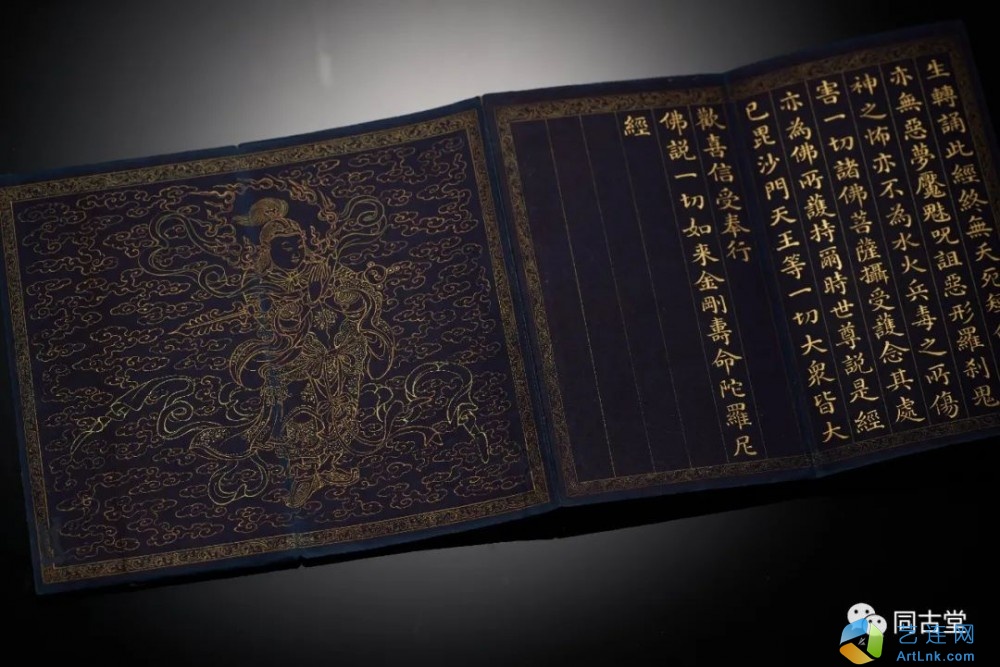 生轉誦此經終無夭死
亦無惡夢魘魅呪詛惡形羅剎鬼
神之怖亦不為水火兵毒之所傷
害一切諸佛菩薩攝受護念其處
亦為佛所護持爾時世尊說是經
已毘沙門天王等一切大衆皆大
歡喜信受奉行
佛説一切如来金剛壽命陀羅尼
經
同古堂
艺连网
ArtLnk.com